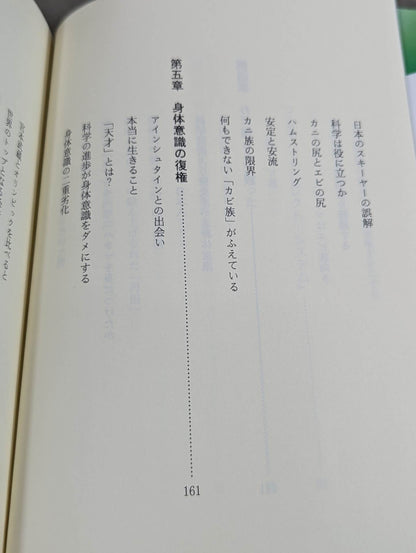 日本のスキーヤーの誤解
科学は役に立つか
カニの尻とエビの尻
ハムストリング
安定と安流
カニ族の限界
何もできない「カビ族」がふえている
第五章 身体意識の復権 161
アインシュタインとの出会い
本当に生きること
「天才」とは？
科学の進歩が身体意識をダメにする
身体意識の二重劣化